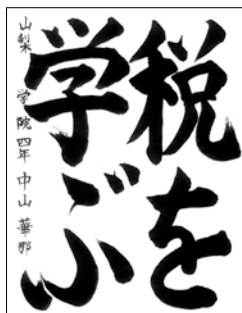 税を
学ぶ
山梨 学院 四年 中山 華那